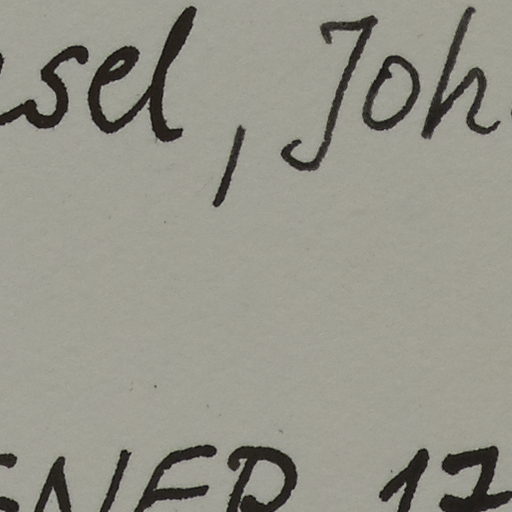 sel, Joh
GNER 17